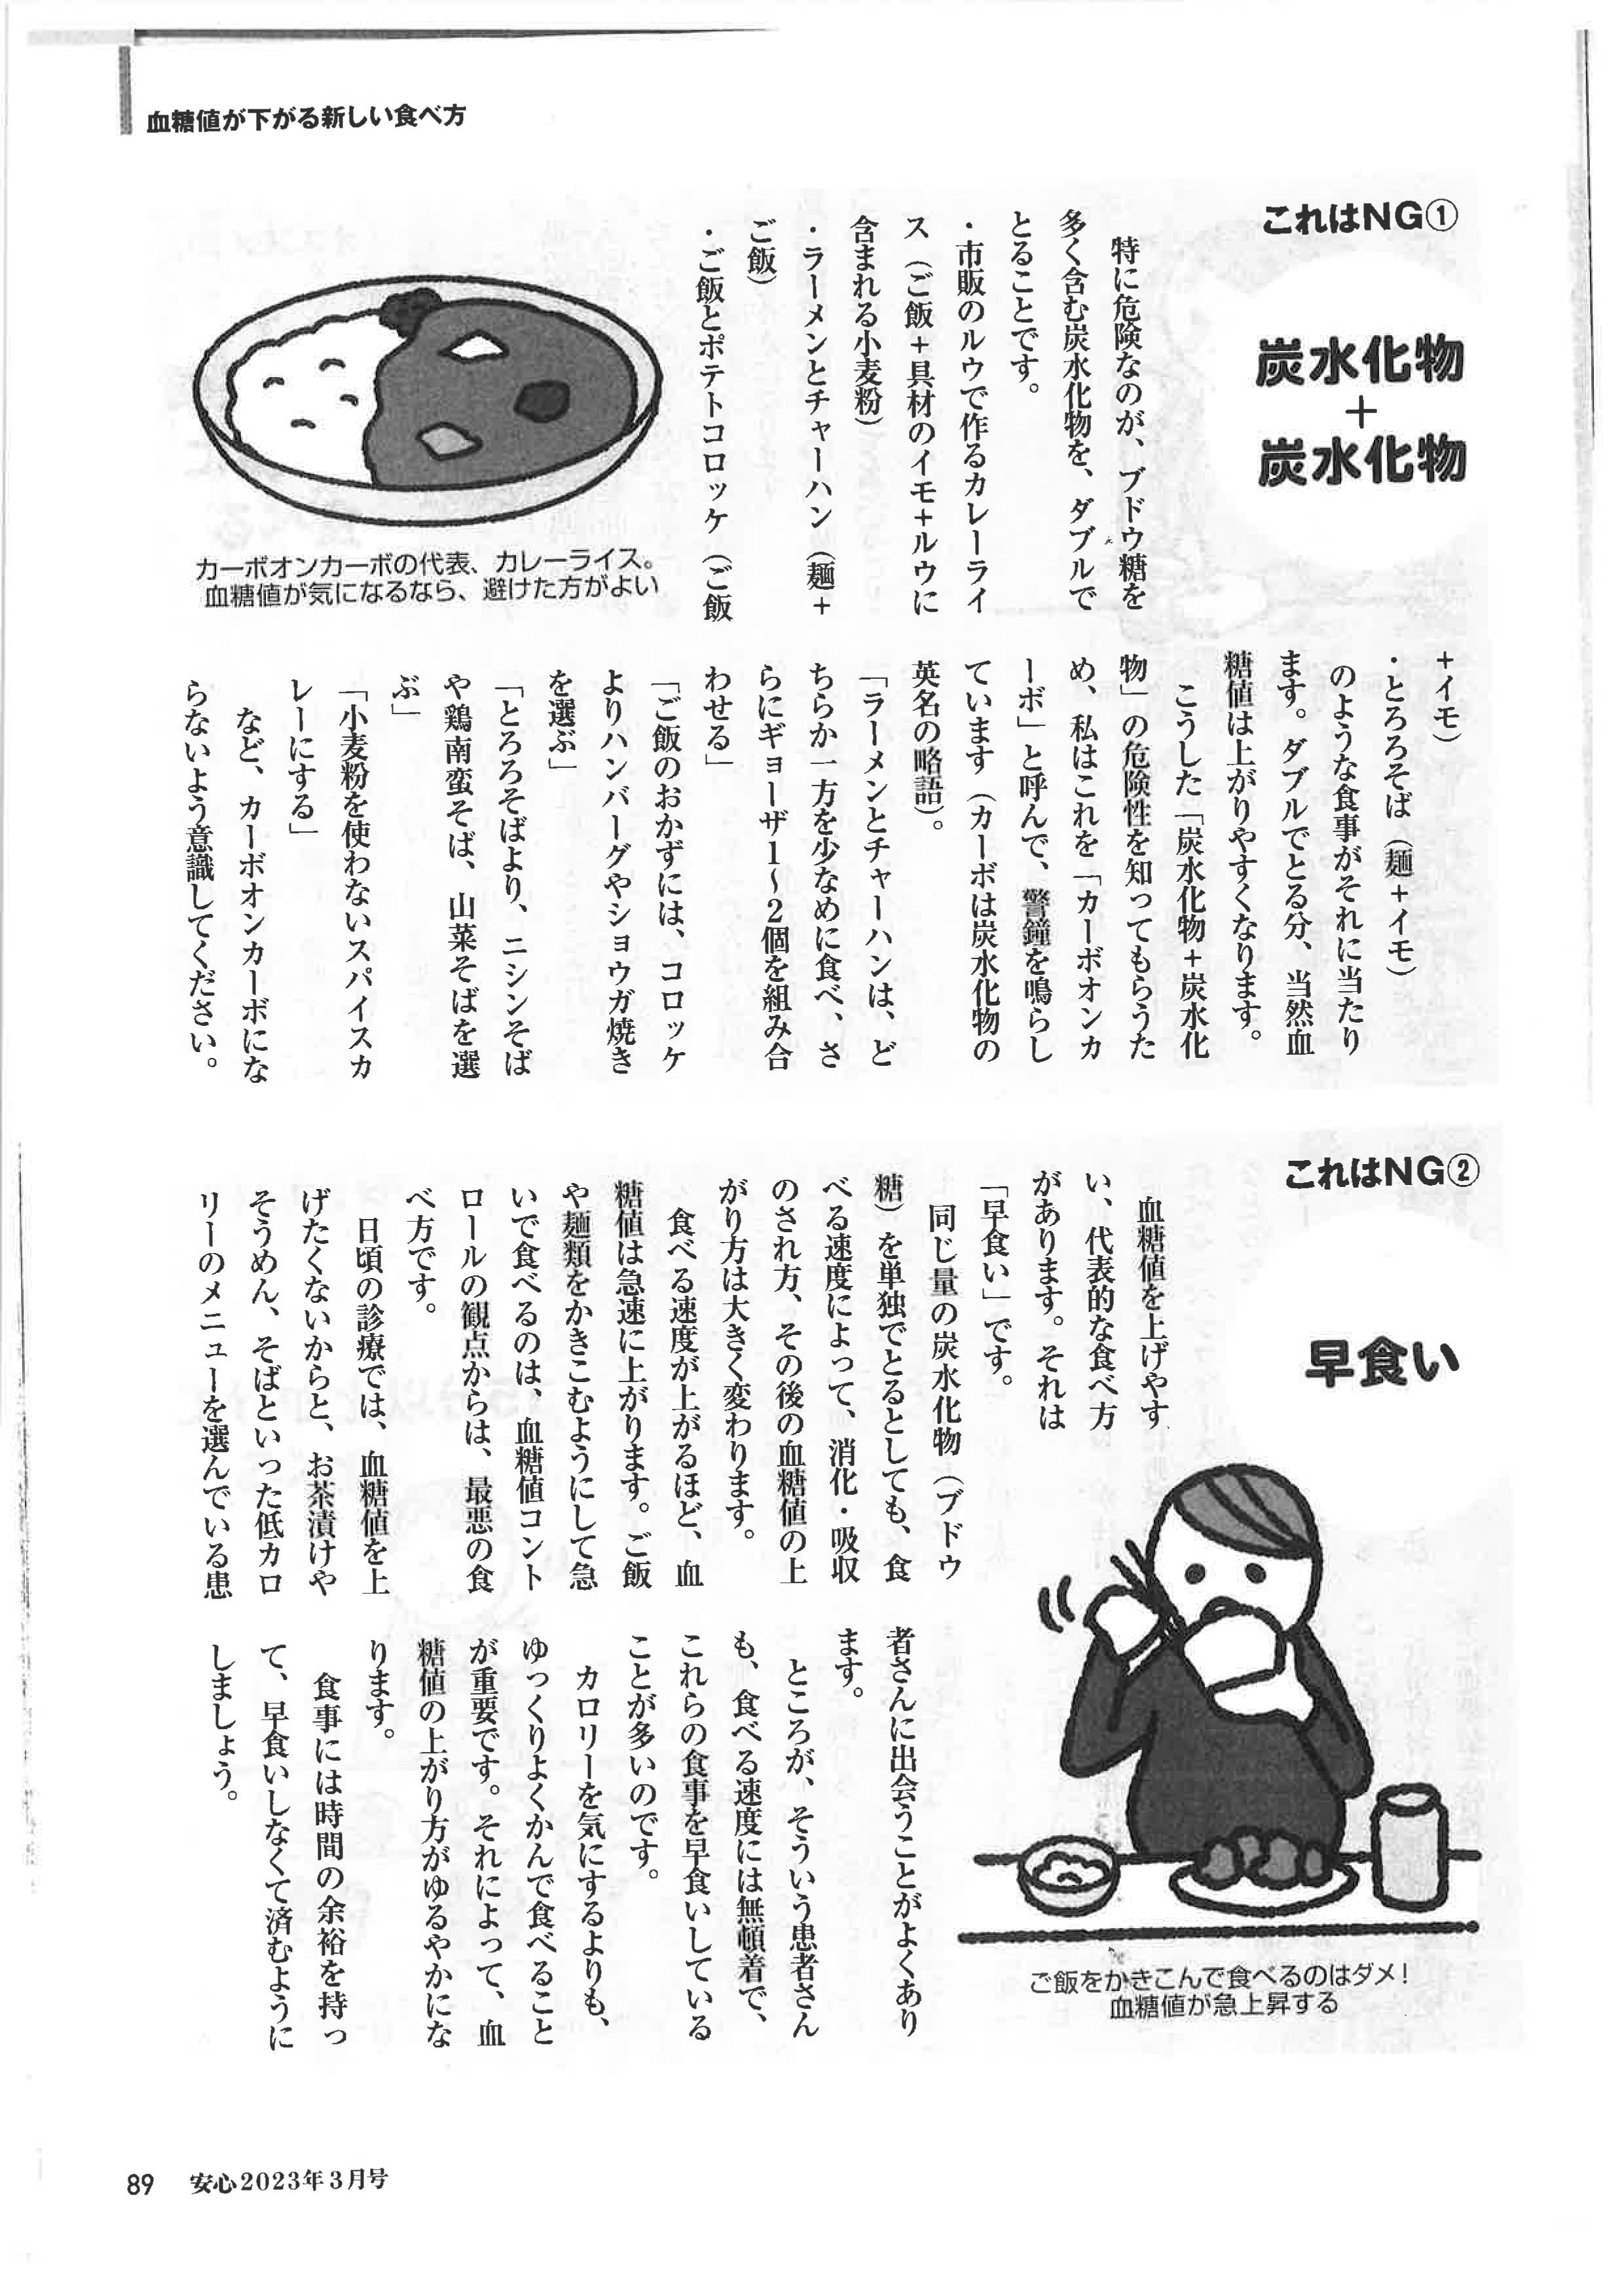 血糖値が下がる新しい食べ方
これはNG①
炭水化物
+
炭水化物
特に危険なのが、ブドウ糖を
多く含む炭水化物を、ダブルで
とることです。
・市販のルウで作るカレーライ
ス（ご飯+具材のイモ+ルウに
含まれる小麦粉）
・ラーメンとチャーハン（麺+
ご飯）
・ご飯とポテトコロッケ（ご飯
カーボオンカーボの代表、カレーライス。
血糖値が気になるなら、避けた方がよい
+イモ）
・とろろそば（麺+イモ）
のような食事がそれに当たり
ます。ダブルでとる分、当然血
糖値は上がりやすくなります。
こうした「炭水化物+炭水化
物」の危険性を知ってもらうた
め、私はこれを「カーボオンカ
ーボ」と呼んで、警鐘を鳴らし
ています（カーボは炭水化物の
英名の略語）。
「ラーメンとチャーハンは、ど
ちらか一方を少なめに食べ、さ
らにギョーザ1～2個を組み合
わせる」
「ご飯のおかずには、コロッケ
よりハンバーグやショウガ焼き
を選ぶ」
「とろろそばより、ニシンそば
や鶏南蛮そば、山菜そばを選
ぶ」
「小麦粉を使わないスパイスカ
レーにする」
など、カーボオンカーボにな
らないよう意識してください。
これはNG②
早食い
血糖値を上げやす
い、代表的な食べ方
があります。それは
「早食い」です。
同じ量の炭水化物（ブドウ
糖）を単独でとるとしても、食
べる速度によって、消化・吸収
のされ方、その後の血糖値の上
がり方は大きく変わります。
食べる速度が上がるほど、血
糖値は急速に上がります。ご飯
や麺類をかきこむようにして急
いで食べるのは、血糖値コント
ロールの観点からは、最悪の食
べ方です。
日頃の診療では、血糖値を上
げたくないからと、お茶漬けや
そうめん、そばといった低カロ
リーのメニューを選んでいる患
者さんに出会うことがよくあり
ます。
ところが、そういう患者さん
も、食べる速度には無頓着で、
これらの食事を早食いしている
ことが多いのです。
カロリーを気にするよりも、
ゆっくりよくかんで食べること
が重要です。それによって、血
糖値の上がり方がゆるやかにな
ります。
食事には時間の余裕を持っ
て、早食いしなくて済むように
しましょう。
ご飯をかきこんで食べるのはダメ！
血糖値が急上昇する
89 安心2023年3月号